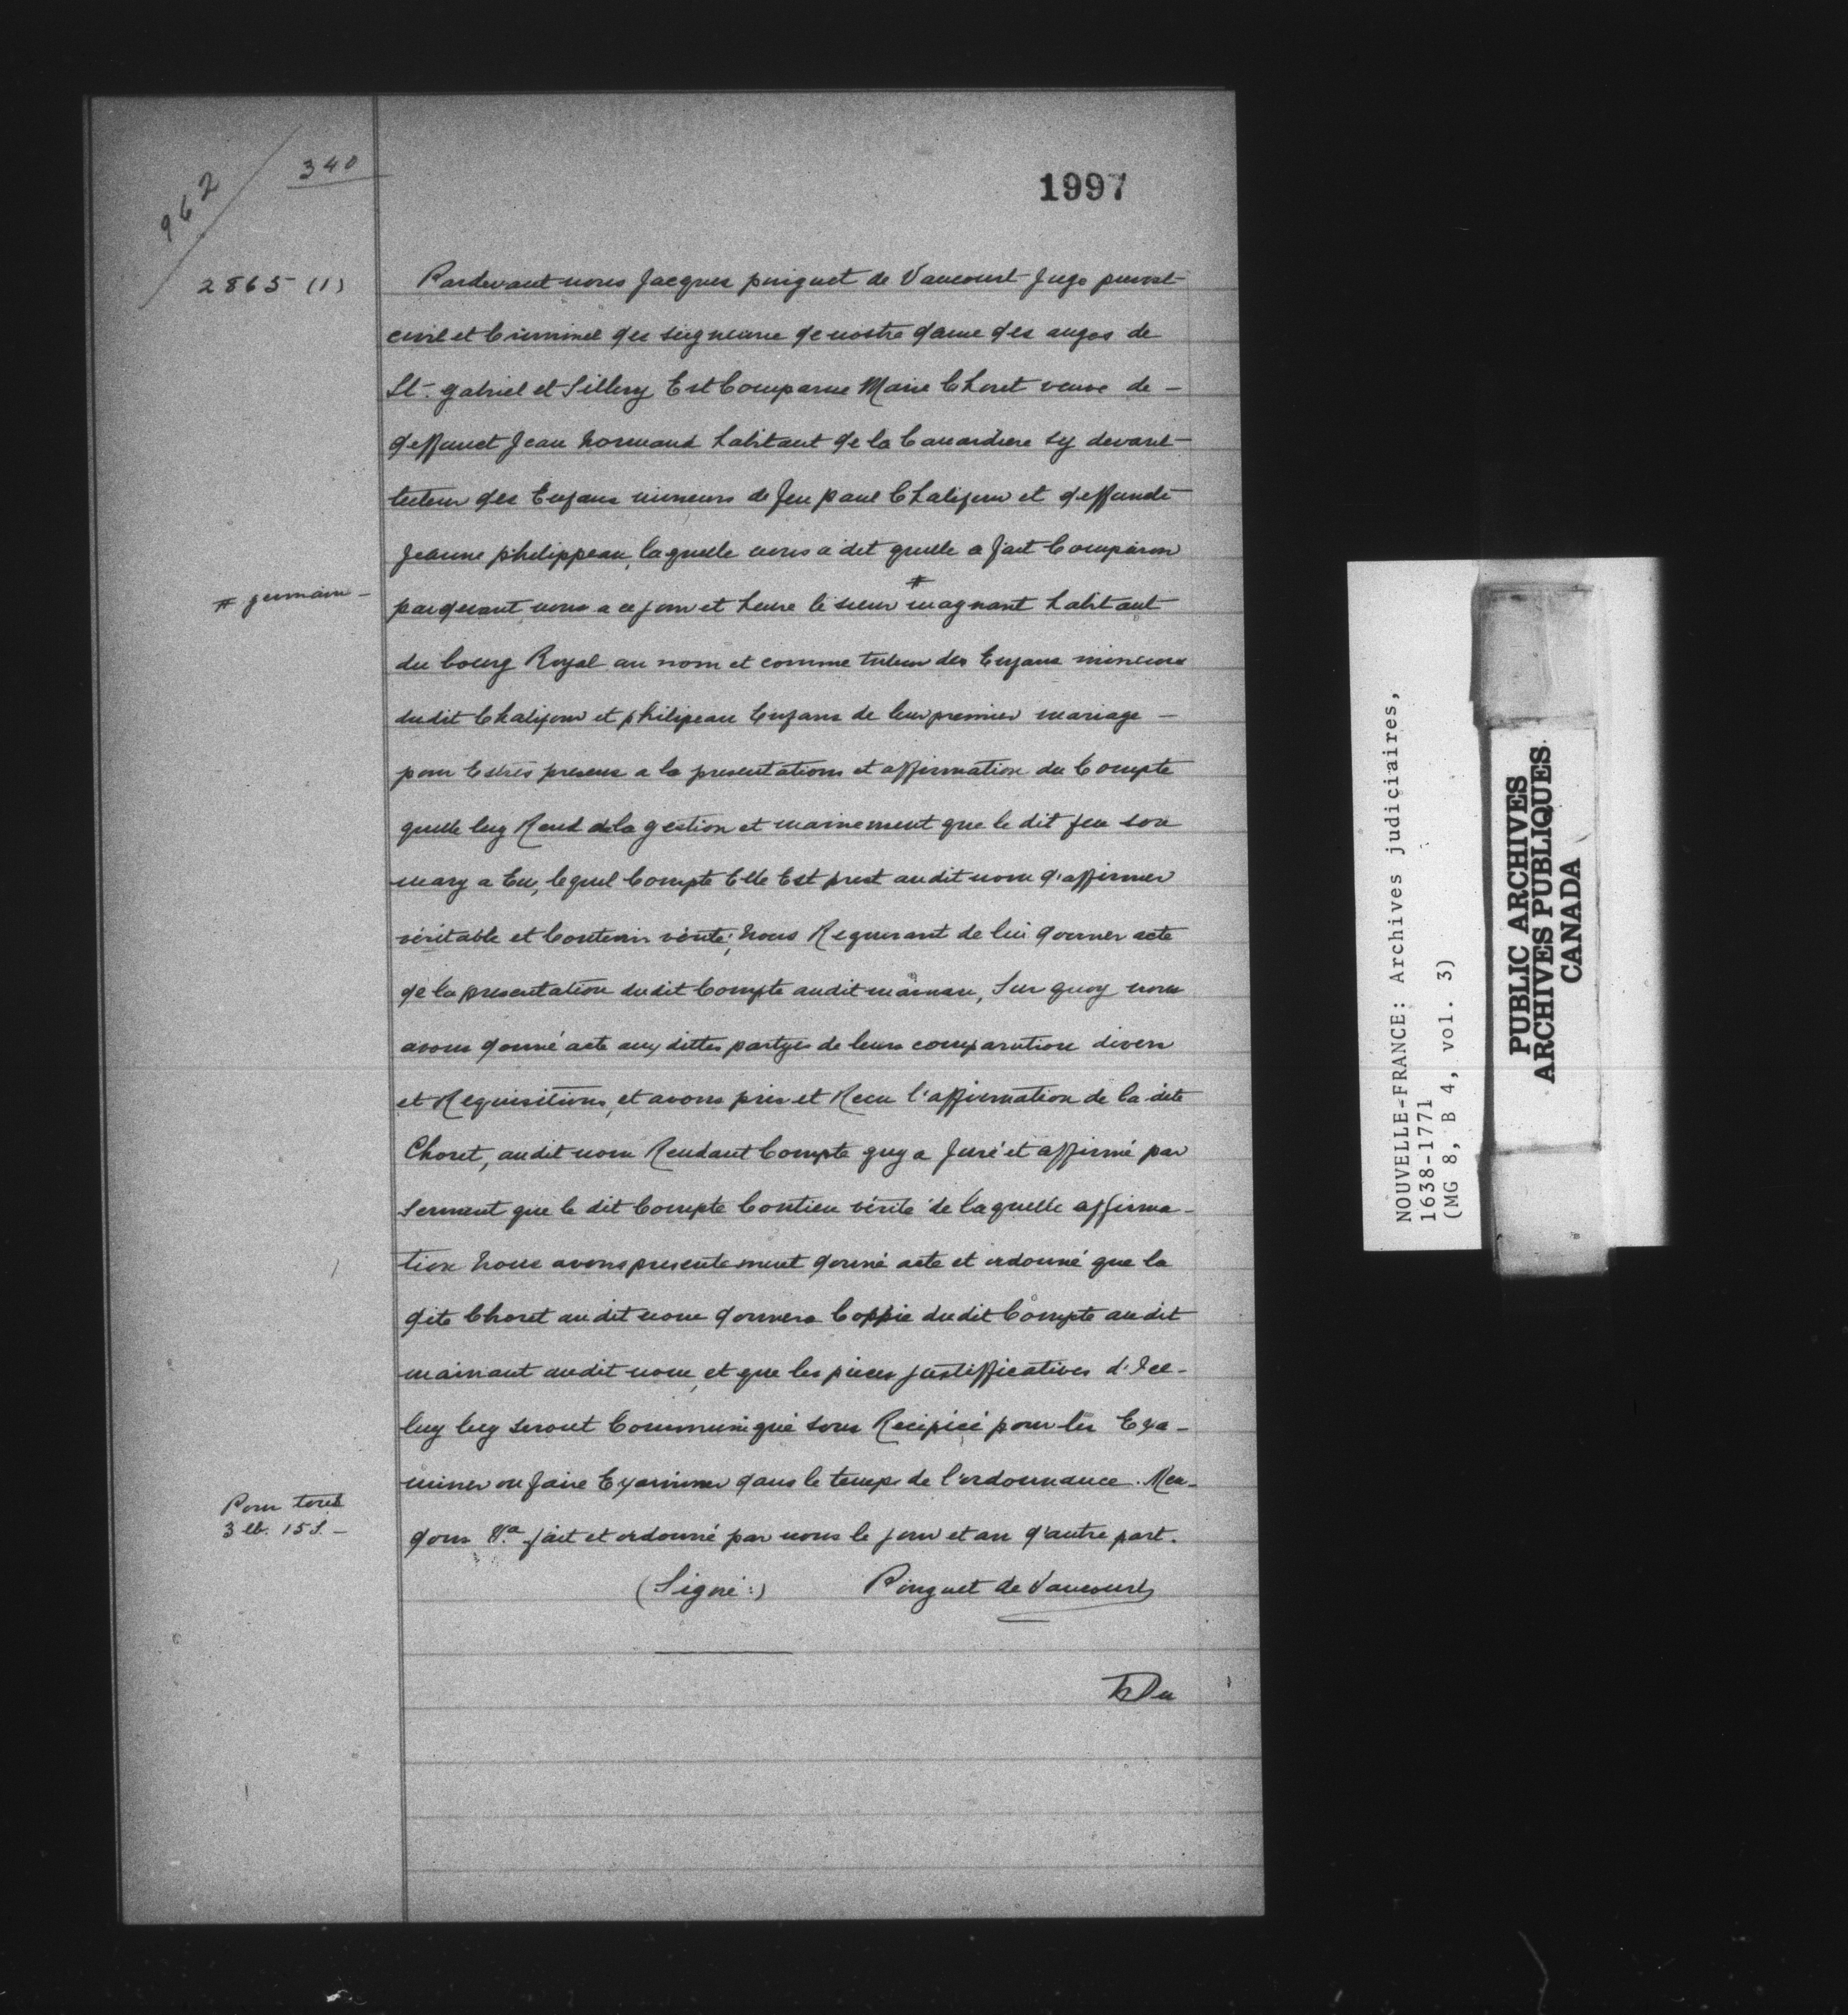 962
340
1997
2865 (1)
Pardevant nous Jacques pinguet de Vaucourt Juge prevost
civil et Criminel des seigneurie de nostre dame des anges de
St. gabriel et Sillery Est Comparue Marie Choret veuve de -
deffunct Jean normand habitant de la Canardiere sy devant
tuteur des Enfans mineurs de feu paul Chalifour et deffunde
Jeanne philippeau, laquelle nous a dit quelle a fait Comparoir
# germain -
pardevant nous a ce jour et heure le sieur # magnant habitant
du bourg Royal au nom et comme tuteur des Enfans mineurs
dudit Chalifour et philipeau Enfans de leur premier mariage -
pour Estres presens a la presentations et affirmation du Compte
quelle luy Rend de la gestion et mainement que le dit feu son
mary a Eu, lequel Compte Elle Est prest audit nom d'affirmer
véritable et Contenir vérité; nous Requerant de lui donner acte
de la presentation dudit Compte audit mainan, Sur quoy nous
avons donné acte aux dittes partyes de leurs comparution divers
et Requisitions, et avons pris et Recu l'affirmation de la dite
Choret, audit nom Rendant Compte quy a Juré et affirmé par
serment que le dit Compte Contien vérité de laquelle affirma-
tion nous avons presentement donné acte et ordonné que la
dite Choret audit nom donnera Coppie dudit Compte audit
mainant audit nom, et que les pieces justifficatives d'Ice-
luy luy seront Communiqué sous Recipicé pour les Exa-
miner ou faire Examiner dans le temps de l'ordonnance. Man-
Pour tous
3 lb. 15 s. -
dons &a. fait et ordonné par nous le jour et an d'autre part.
(Signé:) Pinguet de Vaucourt
NOUVELLE-FRANCE: Archives judiciaires,
1638-1771
(MG 8, B 4, vol. 3)
PUBLIC ARCHIVES
ARCHIVES PUBLIQUES
CANADA